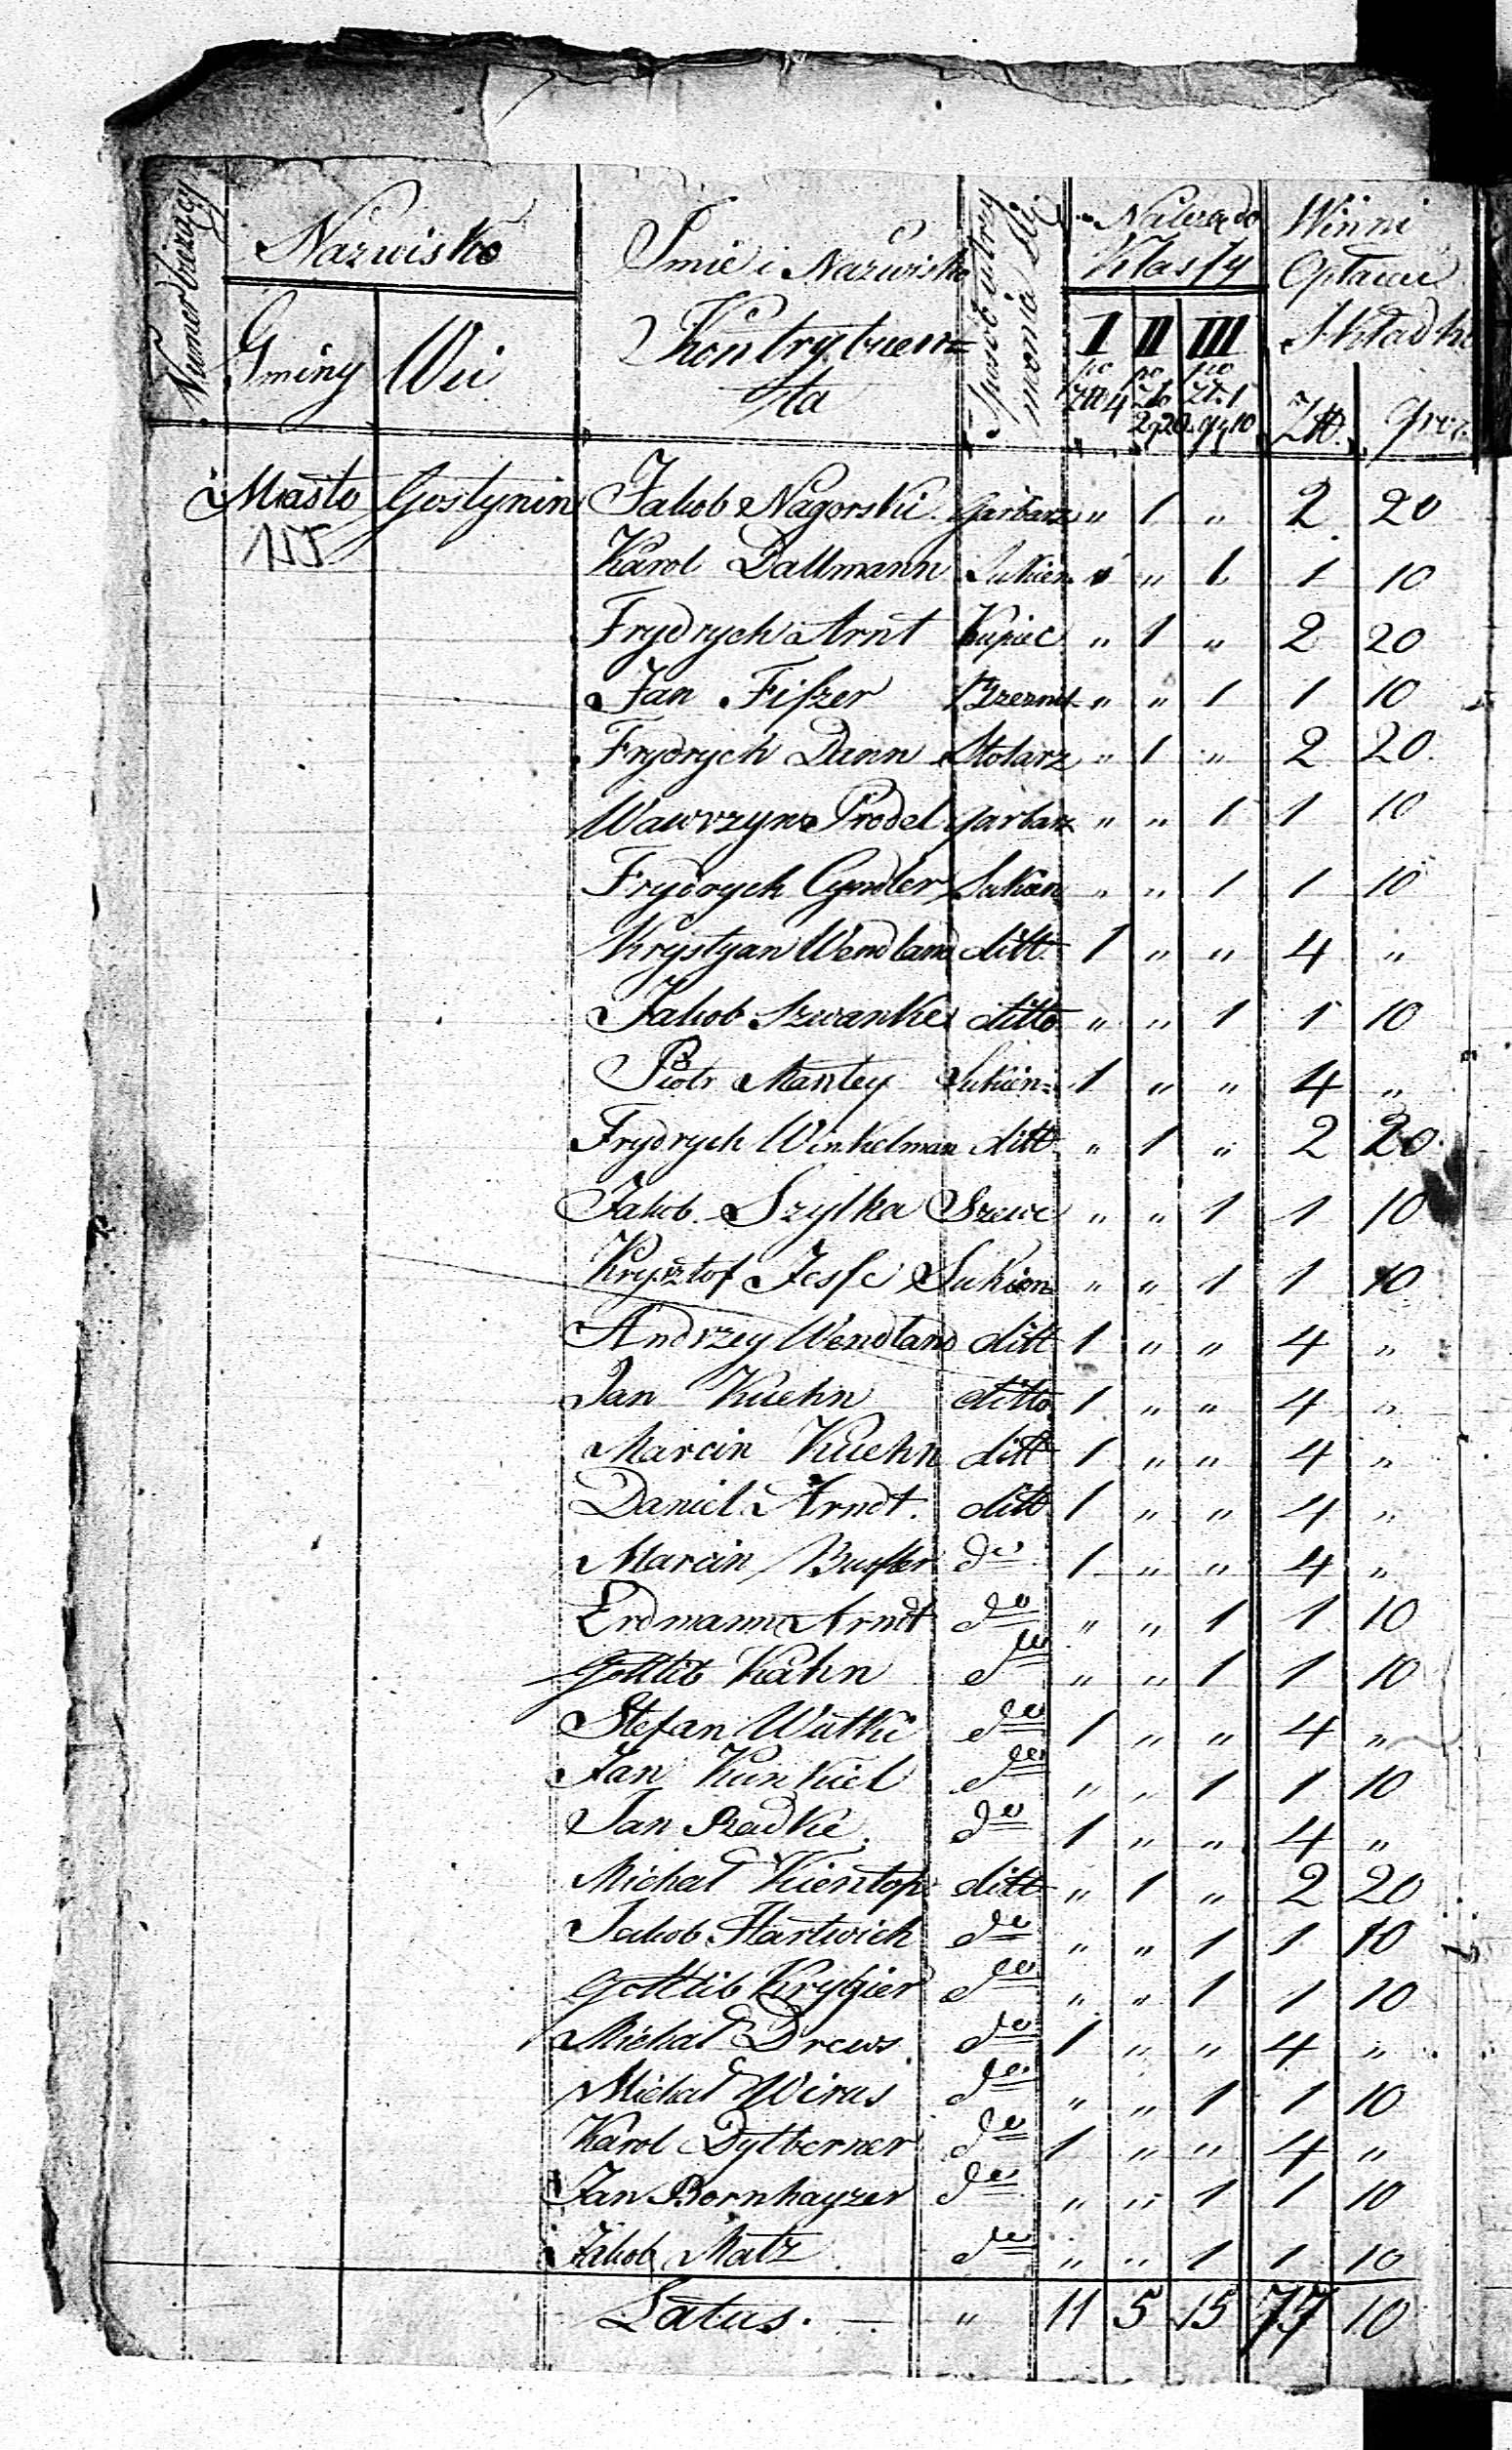 Numer bieżący
Nazwisko
Gminy Wsi
Imie i Nazwisko
Kontrybuen=
ta
Sposób utrzy
mania się
Należą do
Klassy
I II III
po po po
Zł 4 Zło Zł. 1
2g20 gr 10
Winni
Opłacać
Składkę
Złt. Grosz.
Miasto Gostynin Jakob Nagorski Garbarz " 1 " 2 20
Karol Dallmann Sukien " " 1 1 10
Frydrych Arnt Kupiec " 1 " 2 20
Jan Fiszer " " 1 1 10
Frydrych Dann Stolarz " 1 " 2 20
Wawrzyn Prodel garbarz " " 1 1 10
Frydrych Cymler Sukien " " 1 1 10
Krystyan Wendland ditt 1 " " 4 "
Jakob Szwanke ditto " " 1 1 10
Piotr Mantey Sukien= 1 " " 4 "
Frydrych Winkelman ditt " 1 " 2 20
Jakob Szylka Szewc " " 1 1 10
Krysztof Jesse Sukien " " 1 1 10
Andrzey Wendland ditt 1 " " 4 "
Jan Kuehn ditto 1 " " 4 "
Marcin Kuehn ditt 1 " " 4 "
Daniel Arndt. ditt 1 " " 4 "
Marcin do 1 " " 4 "
Erdmann Arndt do " " 1 1 10
Gottlib Kahn do " " 1 1 10
Stefan Wutke do 1 " " 4 "
Jan Kunkiel do " " 1 1 10
Jan Radke. do 1 " " 4 "
Michał Kientop ditt " 1 " 2 20
Jakob Hartwich do " " 1 1 10
Gottlib Krygier do " " 1 1 10
Michał Drews do 1 " " 4 "
Michał Wirus do " " 1 1 10
Karol Dytberner do 1 " " 4 "
Jan Bornhayzer do " " 1 1 10
Jakob Matz do " " 1 1 10
Latus. — " 11 5 15 77 10